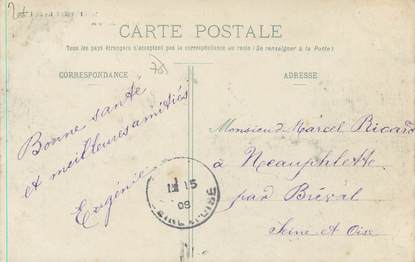 CARTE POSTALE
Tous les pays étrangers n'acceptent pas la correspondance au recto (Se renseigner à la Poste)
CORRESPONDANCE
ADRESSE
Bonne santé
et meilleures amitiés
Eugénie
Monsieur Marcel Ricard
à Neauphlette
par Bréval
Seine et Oise
15
09
SEINE-ET-OISE